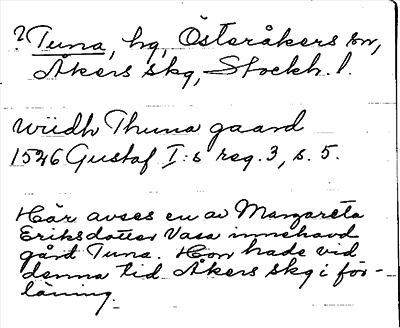 ? Tuna, hg, Österåkers sn,
Åkers skg, Stockh. l.
wiidh Thuna gaard
1526 Gustaf I:s reg. 3, s. 5.
Här avses en av Margareta
Eriksdotter Vasa innehavd
gård Tuna. Hon hade vid
denna tid Åkers skg i för-
läning.